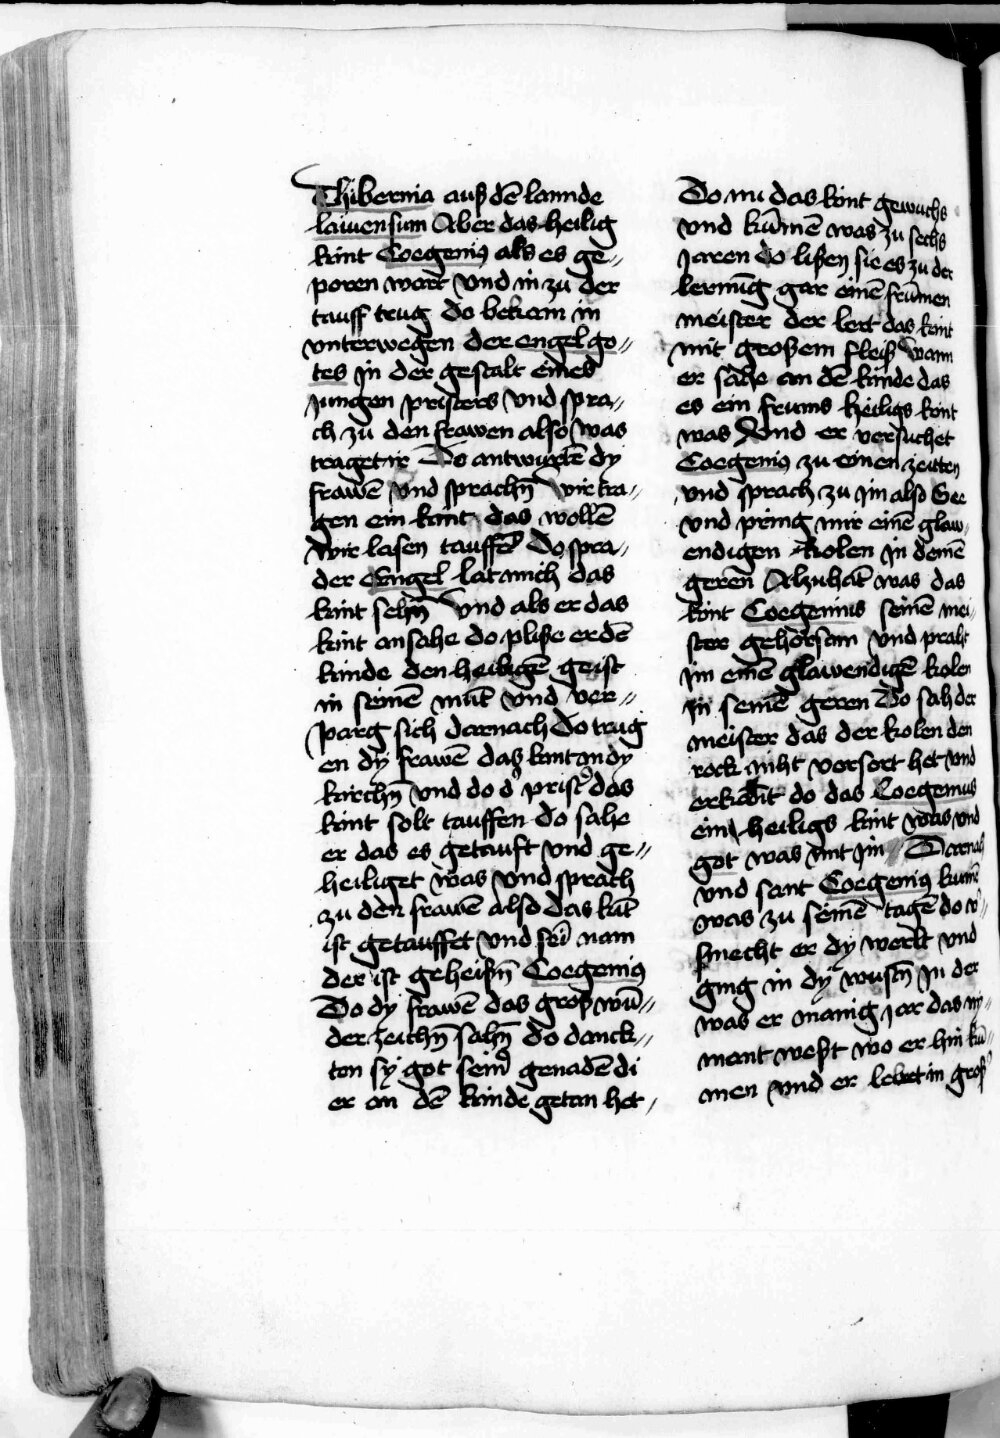 Thibernia auß dē lannde
lauensum Aber das heilig
kint Coegenius als es ge„
poren wart vnd in zu der
tauff trug do bekam in
vnterwegen der engel go„
tes in der gestalt eines
jungen pristers vnd spra„
ch zu den frawen also was
traget ir Do antwurtē dy
frawē vnd sprachn̄ wir tra„
gen ein kint das wollē
wir lasen tauffē Do spra„
der Engel lat mich das
kint sehn̄ vnd als er das
kint ansahe do pliße er dē
kinde den heiligē geist
in seinē mūt vnd ver„
parg sich darnach do trug
en dy frawē das kint in dy
kirchn̄ vnd do d' prist' das
kint solt tauffen do sahe
er das es getauft vnd ge„
heiliget was vnd sprach
zu den frawē also das kīt
ist getauffet vnd sei nam
der ist geheißn̄ Coegenius
Do dy frawē das groß wū„
derzeichn̄ sahn̄ do danck„
ten sy got sein' genadē di
er an dē kinde getan het„
Do nu das kint gewuchs
vnd kūmē was zu sechs
jaren do lißen sie es zu der
lernūg gar einē frūmen
meister der lert das kint
mit großem fleiß wann
er sahe an dē kinde das
es ein frums heiligs kint
was Vnd er versuchet
Coegenius zu einen zeitten
vnd sprach zu jm also Gee
vnd pring mir einē glaw„
endigen kolen in deinē
geren Alzuhāt was das
kint Coegenius seinē mei„
ster gehorsam vnd praht
jm einē glawendigē kolen
in seinē geren Do sah der
meister das der kolen den
rock niht versert het vnd
erkant do das Coegenius
ein heiligs kint was vnd
got was mit jm Darnach
vnd sant Coegenius kumē
was zu seinē tagē do v'„
smecht er dy werlt vnd
ging in dy wustn̄ in der
was er manig jar das ny„
mant weßt wo er hin kū„
men vnd er lebet in groß'